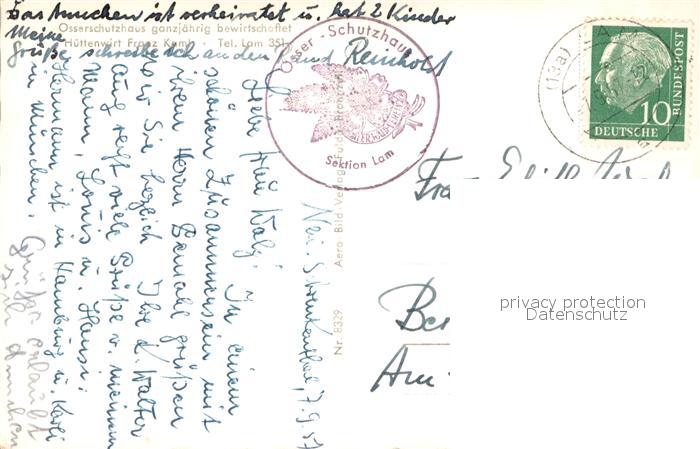 Das Annchen ist verheiratet u. hat 2 Kinder
Meine
Grüße schreibe ich an den Rand Reinhold
Osserschutzhaus ganzjährig bewirtschaftet
Hüttenwirt Franz Kam · Tel. Lam 351
Osser-Schutzhaus
Sektion Lam
(13a)
10
DEUTSCHE
BUNDESPOST
Nr. 8329 Aero-Bild-Verlag
7.9.57
Liebe Frau Walz! In einem
schönen Zusammensein mit
Ihrem Herrn Gemahl grüßen
wir Sie herzlich Ihre L. Walter
auch recht viele Grüße v. meinem
Mann, Louis u. Hansi.
Hermann ist in Hamburg u. Karli
in München.
Grüße erlaubt
sich
Frau
Am
privacy protection
Datenschutz